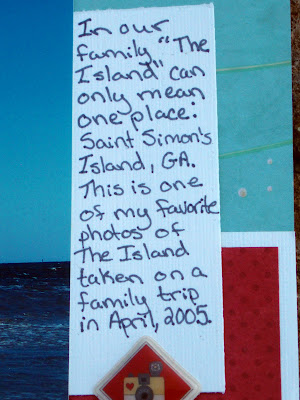 In our
family "The
Island" can
only mean
one place:
Saint Simon's
Island, GA.
This is one
of my favorite
photos of
The Island
taken on a
family trip
in April, 2005.